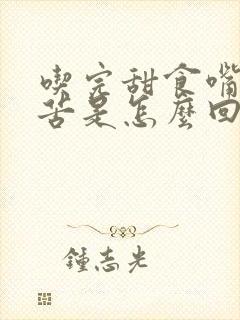 喫完甜食嘴
苦是怎麼回
鍾志光